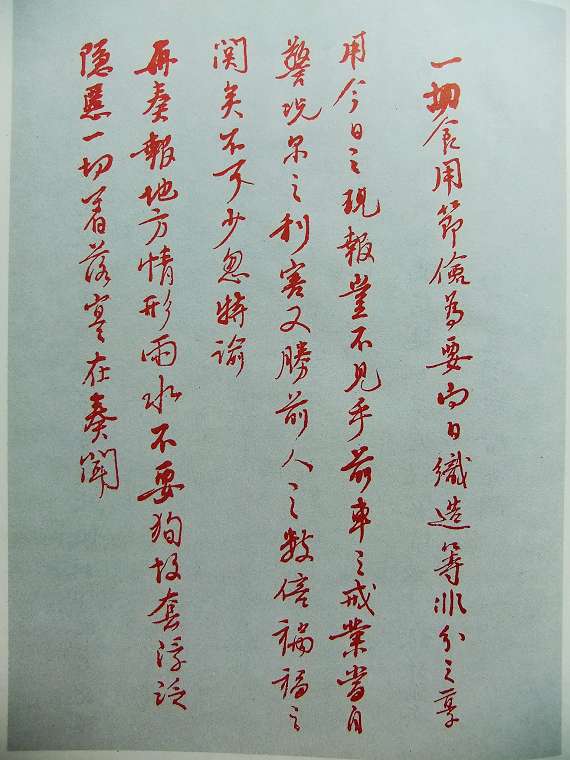 一切食用節儉為要向日織造等非分之享
用今日之現報豈不見乎前車之戒業當自
警況尔之利害又勝前人之数倍禍福之
関矣不可少忽特諭
再奏報地方情形雨水不要狥故套浮泛
隐匿一切着落寔在奏聞